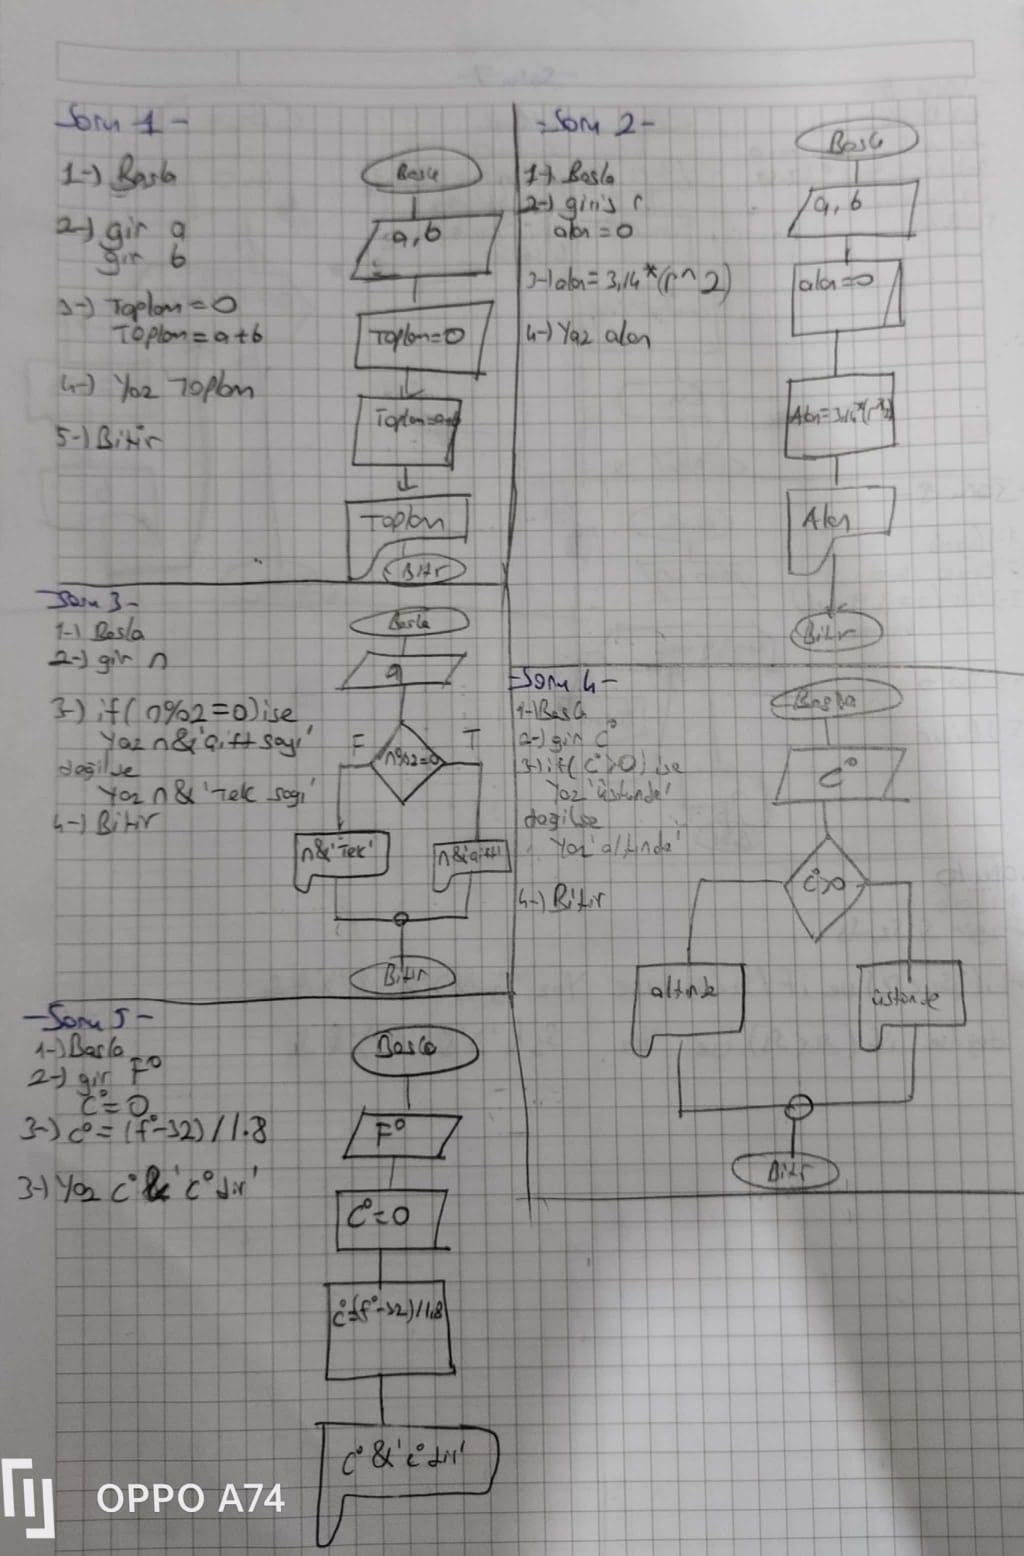 Soru 1-
1-) Basla
2-) gir a
gir b
3-) Toplam=0
Toplam=a+b
4-) Yaz Toplam
5-) Bitir
Basla
a, b
Toplam=0
Toplam=a+b
Toplam
Bitir
-Soru 2-
1-) Basla
2-) giriş r
alan=0
3-) alan=3,14*(r^2)
4-) Yaz alan
Basla
a, b
alan=0
Alan=3,14*(r^2)
Alan
Bitir
Soru 3-
1-) Basla
2-) gir n
3-) if(n%2=0)ise
Yaz n&'çift sayi'
değilse
Yaz n&'Tek sayi'
4-) Bitir
Basla
a
F
T
n%2=0
n&'Tek'
n&'çift'
Bitir
-Soru 4-
1-) Basla
2-) gir C°
3-) if(C°>0) ise
Yaz 'üstünde'
değilse
Yaz 'altında'
4-) Bitir
Basla
C°
C°>0
altında
üstünde
Bitir
-Soru 5-
1-) Basla
2-) gir F°
C°=0
3-) C°=(f°-32)/1.8
3-) Yaz C° & 'C° dir'
Basla
F°
C°=0
C°=(f°-32)/1.8
C° &'C° dir'
OPPO A74